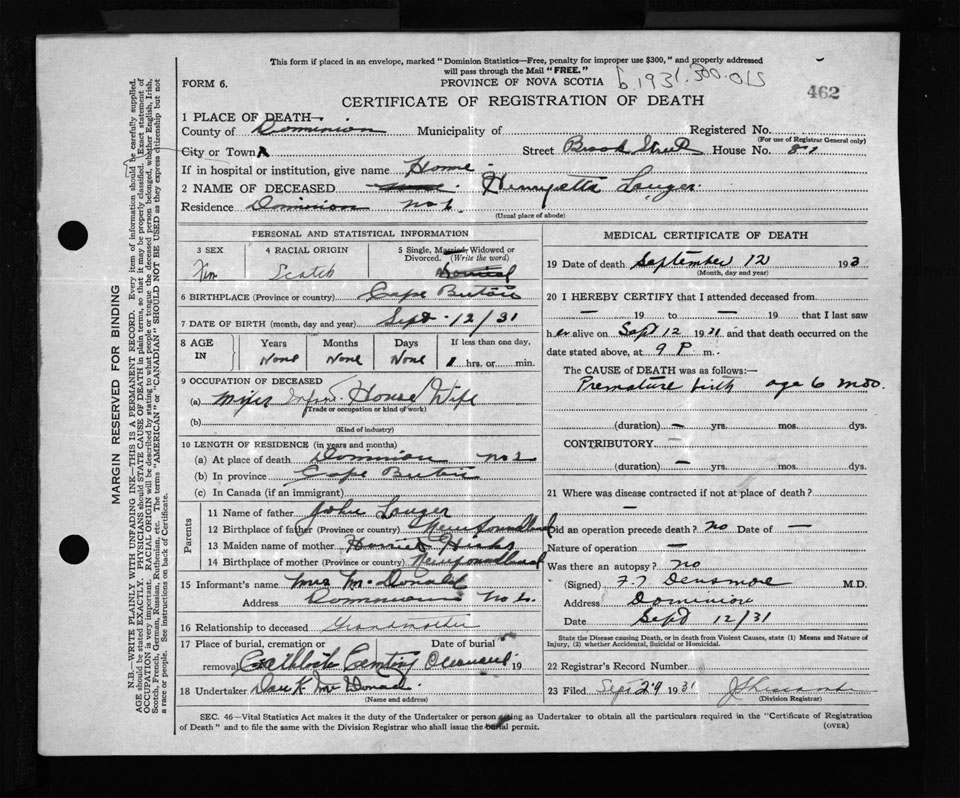 This form if placed in an envelope, marked "Dominion Statistics—Free, penalty for improper use $300," and properly addressed
will pass through the Mail "FREE."
FORM 6.
PROVINCE OF NOVA SCOTIA
1931.300.015
462
CERTIFICATE OF REGISTRATION OF DEATH
1 PLACE OF DEATH—
County of Dominion Municipality of Registered No.
(For use of Registrar General only)
City or Town Street Brook Street House No.
If in hospital or institution, give name Home
2 NAME OF DECEASED Henryetta Lauger
Residence Dominion No 6
(Usual place of abode)
PERSONAL AND STATISTICAL INFORMATION
3 SEX 4 RACIAL ORIGIN 5 Single, Married, Widowed or Divorced. (Write the word)
Fem Scotch
6 BIRTHPLACE (Province or country) Cape Breton
7 DATE OF BIRTH (month, day and year) Sept 12/31
8 AGE IN Years Months Days If less than one day,
None None None 1 hrs. or min.
9 OCCUPATION OF DECEASED
(a) House Wife
(Trade or occupation or kind of work)
(b)
(Kind of industry)
10 LENGTH OF RESIDENCE (in years and months)
(a) At place of death Dominion
(b) In province Cape Breton
(c) In Canada (if an immigrant)
Parents
11 Name of father John Lauger
12 Birthplace of father (Province or country) Newfoundland
13 Maiden name of mother Harriet Hicks
14 Birthplace of mother (Province or country) Newfoundland
15 Informant's name Mrs McDonald
Address Dominion No 6
16 Relationship to deceased Grandmother
17 Place of burial, cremation or removal Date of burial
Catholic 19
18 Undertaker Dan K. McDonald
(Name and address)
MEDICAL CERTIFICATE OF DEATH
19 Date of death September 12 193
(Month, day and year)
20 I HEREBY CERTIFY that I attended deceased from
— 19 to — 19 that I last saw
her alive on Sept 12 1931 and that death occurred on the
date stated above, at 9 P m.
The CAUSE of DEATH was as follows:
Premature birth age 6 mos.
(duration) — yrs. mos. dys.
CONTRIBUTORY —
(duration) — yrs. mos. dys.
21 Where was disease contracted if not at place of death?
—
Did an operation precede death? no Date of —
Nature of operation —
Was there an autopsy? no
(Signed) Densmore M.D.
Address Dominion
Date Sept 12/31
State the Disease causing Death, or in death from Violent Causes, state (1) Means and Nature of
Injury, (2) whether Accidental, Suicidal or Homicidal.
22 Registrar's Record Number
23 Filed Sept 29 1931
(Division Registrar)
SEC. 46—Vital Statistics Act makes it the duty of the Undertaker or person acting as Undertaker to obtain all the particulars required in the "Certificate of Registration
of Death" and to file the same with the Division Registrar who shall issue the burial permit.
(OVER)
MARGIN RESERVED FOR BINDING
N.B.—WRITE PLAINLY WITH UNFADING INK—THIS IS A PERMANENT RECORD. Every item of information should be carefully supplied.
AGE should be stated EXACTLY. PHYSICIANS should STATE CAUSE OF DEATH in plain terms, so that it may be properly classified. Exact statement of
OCCUPATION is very important. RACIAL ORIGIN will be described by stating to what people or tongue the deceased person belonged, whether English, Irish,
Scotch, French, German, Russian, Ruthenian, etc. The terms "AMERICAN" or "CANADIAN" SHOULD NOT BE USED as they express citizenship but not
a race or people. See instructions on back of Certificate.